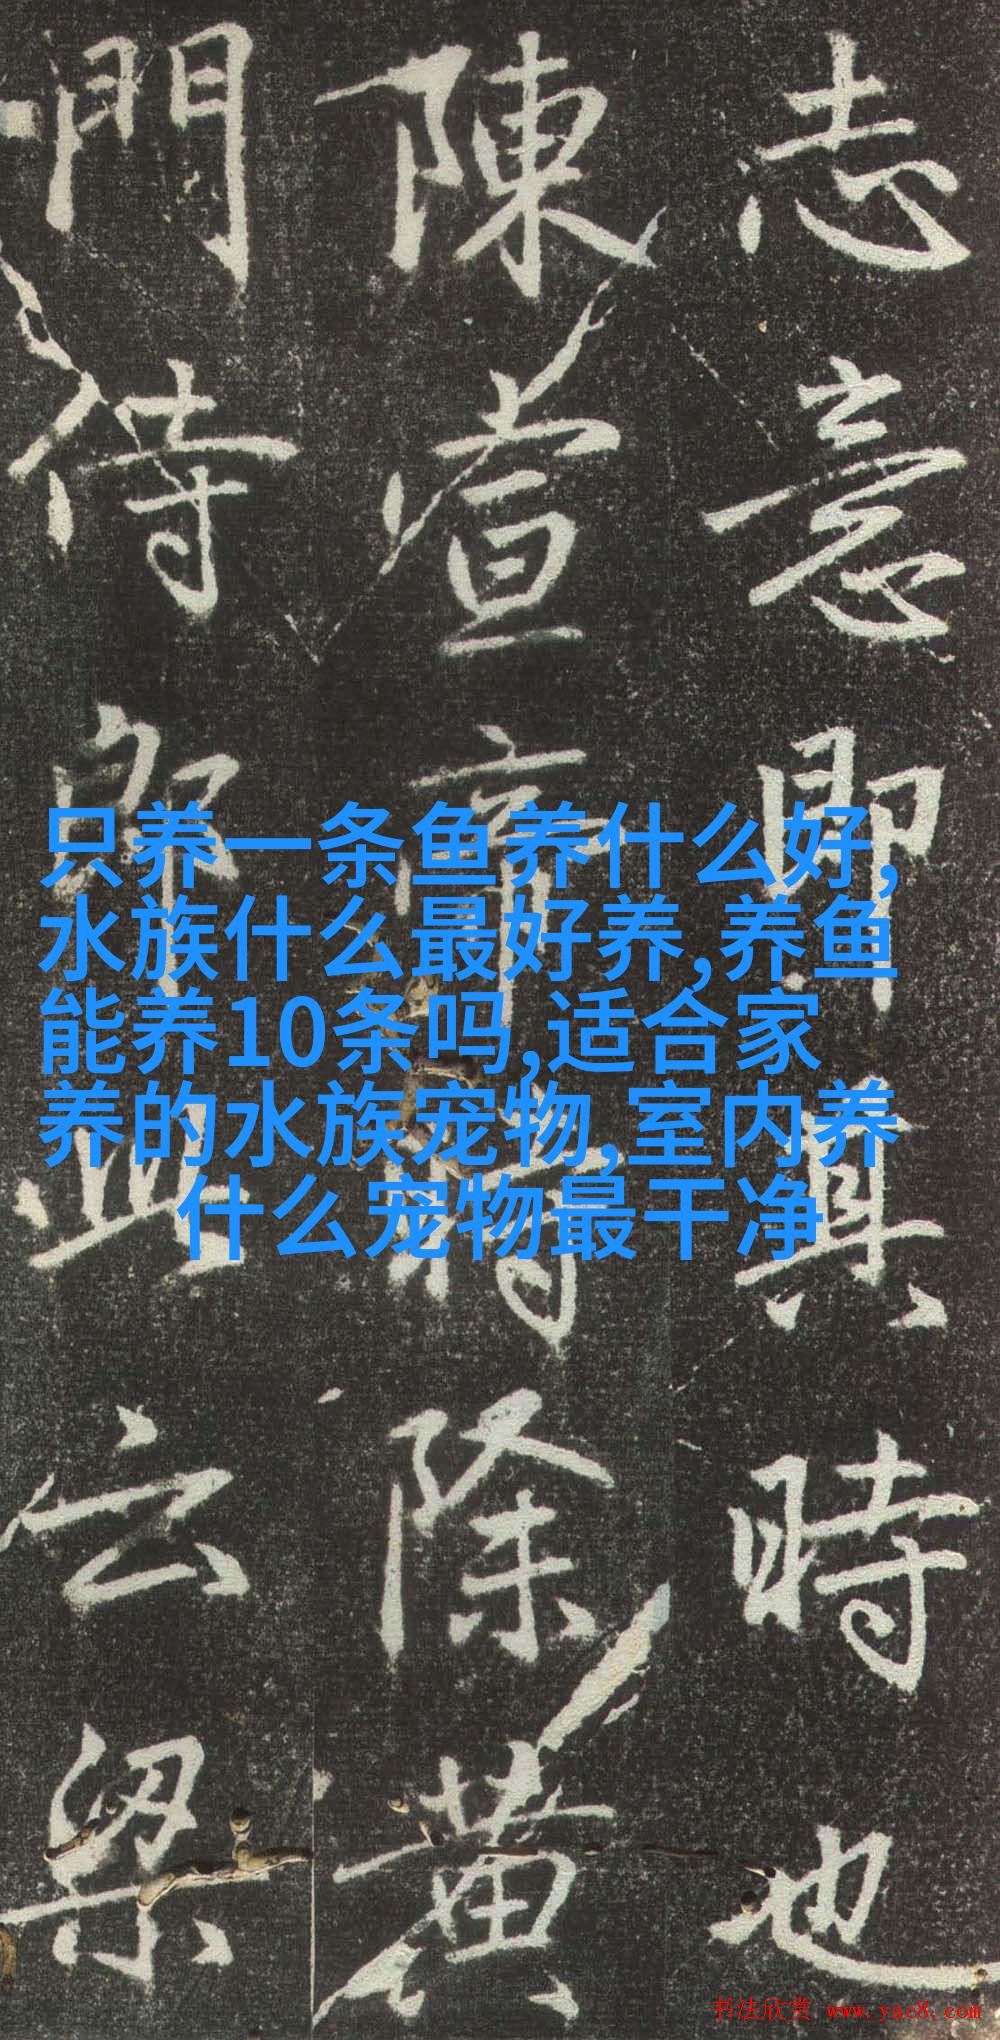 志意即其時也
陳宣帝時除黃
門侍郎此云梁
只养一条鱼养什么好,
水族什么最好养,养鱼
能养10条吗,适合家
养的水族宠物,室内养
什么宠物最干净
书法欣赏 www.yac8.com